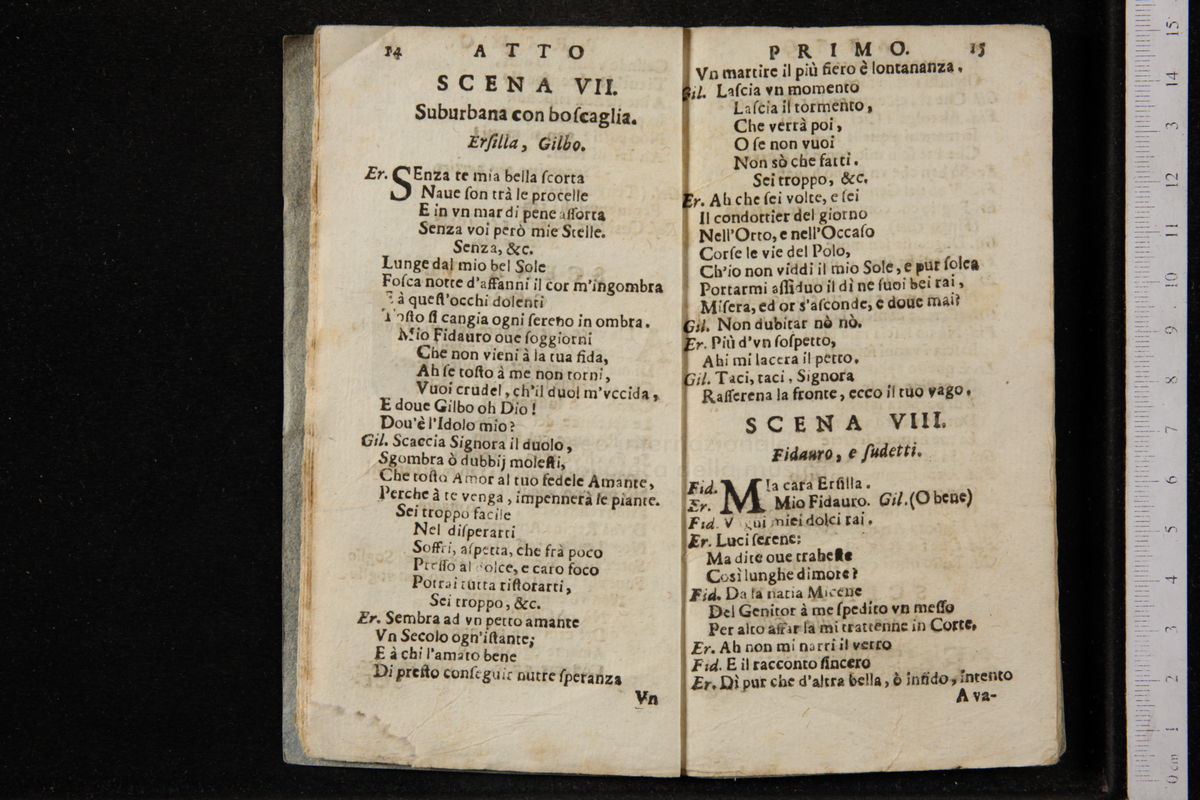 14 ATTO
SCENA VII.
Suburbana con boſcaglia.
Erſilla, Gilbo.
Er. SEnza te mia bella ſcorta
Naue ſon trà le procelle
E in vn mar di pene aſſorta
Senza voi però mie Stelle.
Senza, &c.
Lunge dal mio bel Sole
Foſca notte d'affanni il cor m'ingombra
E à queſt'occhi dolenti
Toſto ſi cangia ogni ſereno in ombra.
Mio Fidauro oue ſoggiorni
Che non vieni à la tua fida,
Ah ſe toſto à me non torni,
Vuoi crudel, ch'il duol m'vccida,
E doue Gilbo oh Dio!
Dou'è l'Idolo mio?
Gil. Scaccia Signora il duolo,
Sgombra ò dubbij moleſti,
Che toſto Amor al tuo fedele Amante,
Perche à te venga, impennerà le piante.
Sei troppo facile
Nel diſperarti
Soffri, aſpetta, che frà poco
Preſſo al dolce, e caro foco
Potrai tutta riſtorarti,
Sei troppo, &c.
Er. Sembra ad vn petto amante
Vn Secolo ogn'iſtante;
E à chi l'amato bene
Di preſto conſeguir nutre ſperanza
Vn
PRIMO. 15
Vn martire il più fiero è lontananza.
Gil. Laſcia vn momento
Laſcia il tormento,
Che verrà poi,
O ſe non vuoi
Non sò che farti.
Sei troppo, &c.
Er. Ah che ſei volte, e ſei
Il condottier del giorno
Nell'Orto, e nell'Occaſo
Corſe le vie del Polo,
Ch'io non viddi il mio Sole, e pur ſolea
Portarmi aſſiduo il dì ne ſuoi bei rai,
Miſera, ed or s'aſconde, e doue mai?
Gil. Non dubitar nò nò.
Er. Più d'vn ſoſpetto,
Ahi mi lacera il petto.
Gil. Taci, taci, Signora
Raſſerena la fronte, ecco il tuo vago.
SCENA VIII.
Fidauro, e ſudetti.
Fid. MIa cara Erſilla.
Er. Mio Fidauro. Gil. (O bene)
Fid. miei dolci rai.
Er. Luci ſerene:
Ma dite oue traheſte
Così lunghe dimore?
Fid. Da la natia Micene
Del Genitor à me ſpedito vn meſſo
Per alto affar là mi trattenne in Corte,
Er. Ah non mi narri il vero
Fid. E il racconto ſincero
Er. Dì pur che d'altra bella, ò infido, intento
A va-
0 cm 1 2 3 4 5 6 7 8 9 10 11 12 13 14 15